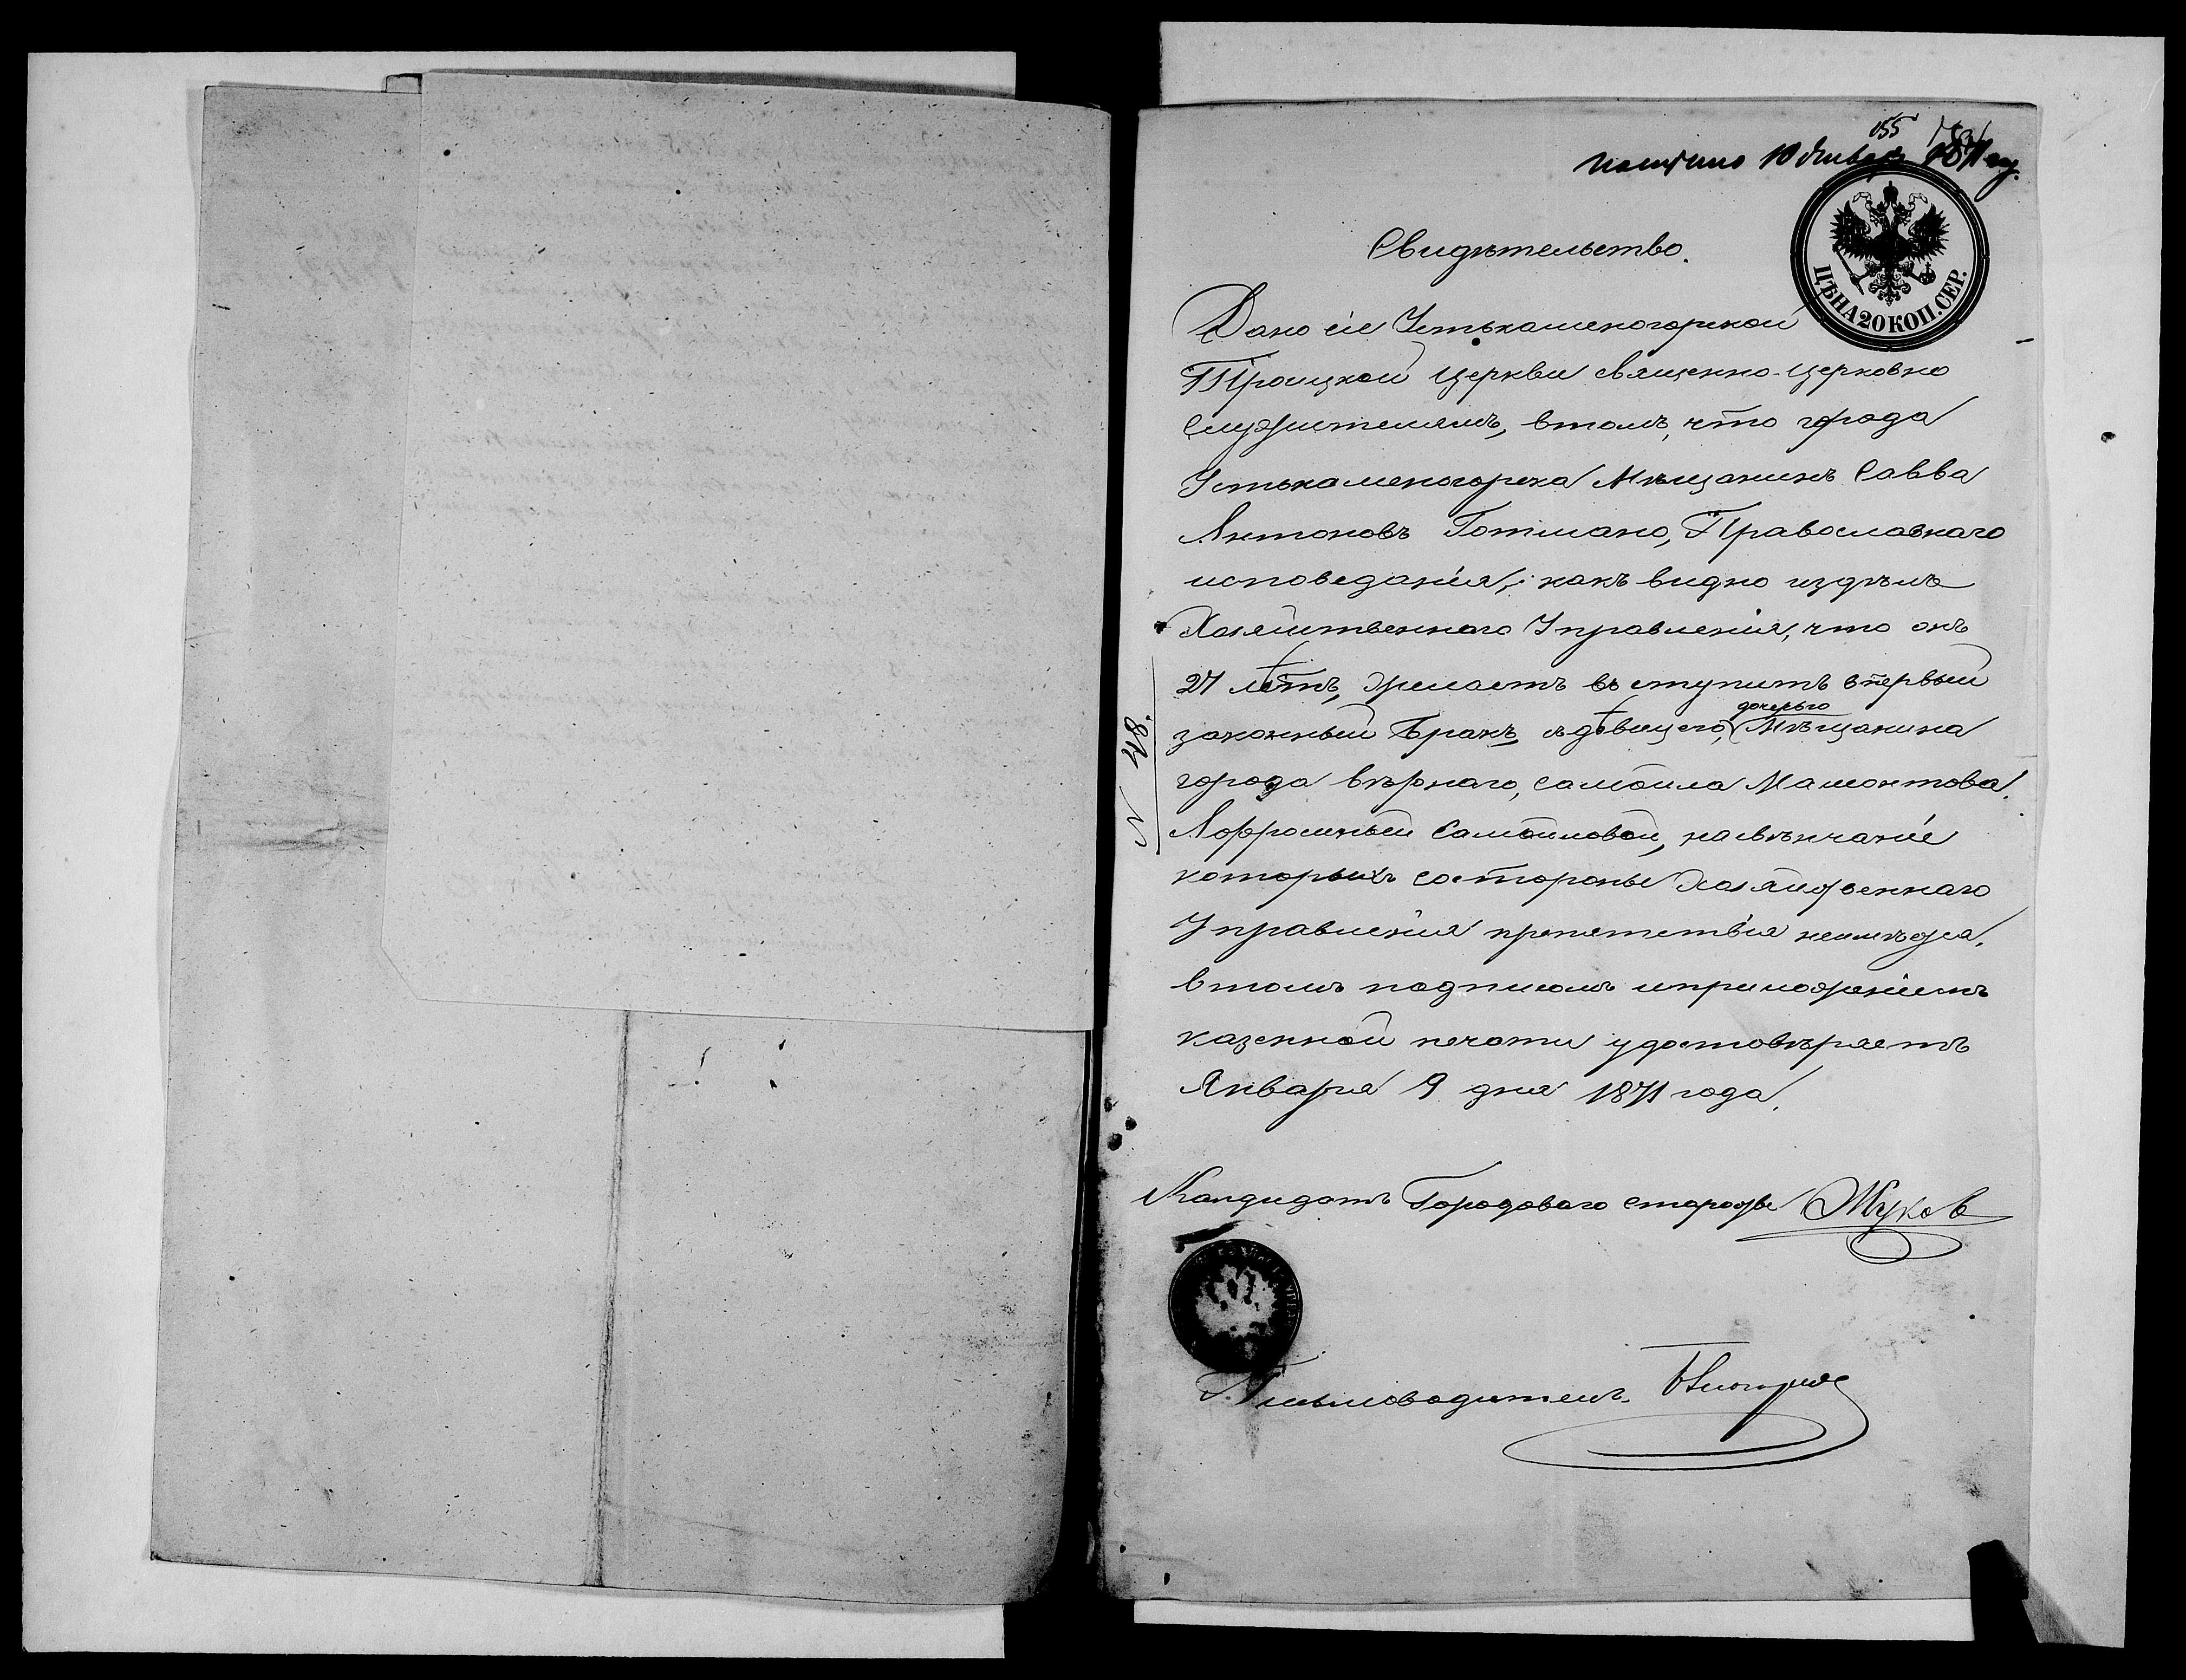 10 Января 1871 год.
Свидѣтельство.
ЦѢНА 20 КОП. СЕР.
Дано сіе Устькаменогорской
Троицкой Церкви священно-церковно
служителямъ, втомъ, что города
Устькаменогорска Мѣщанинъ Савва
Антоновъ Православнаго
исповеданія, какъ видно издѣлъ
Хозяйственнаго Управленія, что онъ
27 летъ, желаетъ вступить впервый
законный бракъ съ девицею, дочерью Мѣщанина
города вѣрнаго, Самойла Мамонтова
Самойловой, на вѣнчаніе
которыхъ состороны Хозяйственнаго
Управленія препятствія неимѣется,
втомъ подписомъ иприложеніемъ
казенной печати удостовѣряетъ
Января 9 дня 1871 года.
N 18.
Кандидатъ Городоваго старосты Жуков
Письмоводитель